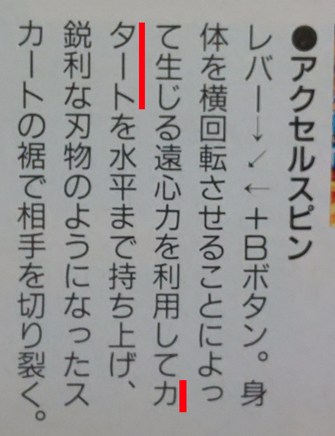 ●アクセルスピン
レバー↓↙←+Bボタン。身
体を横回転させることによっ
て生じる遠心力を利用してカ
タートを水平まで持ち上げ、
鋭利な刃物のようになったス
カートの裾で相手を切り裂く。